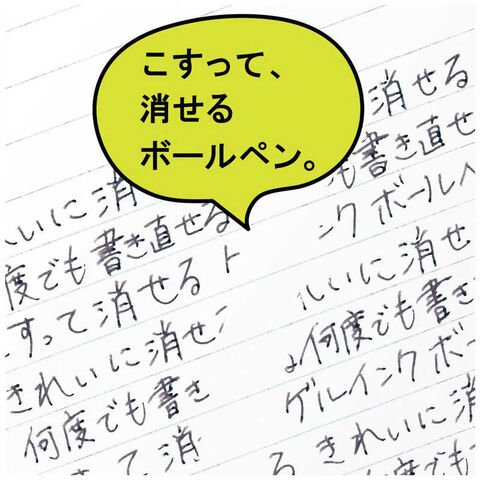 こすって、
消せる
ボールペン。
消せる
も書き直せ
ンクボールペ
れいに消
何度でも書き直せる
すって消せる
きれいに消せ
何度でも書き
て消
いに消せ
何度でも書き
ゲルインクボー
る きれいに消
何度でも